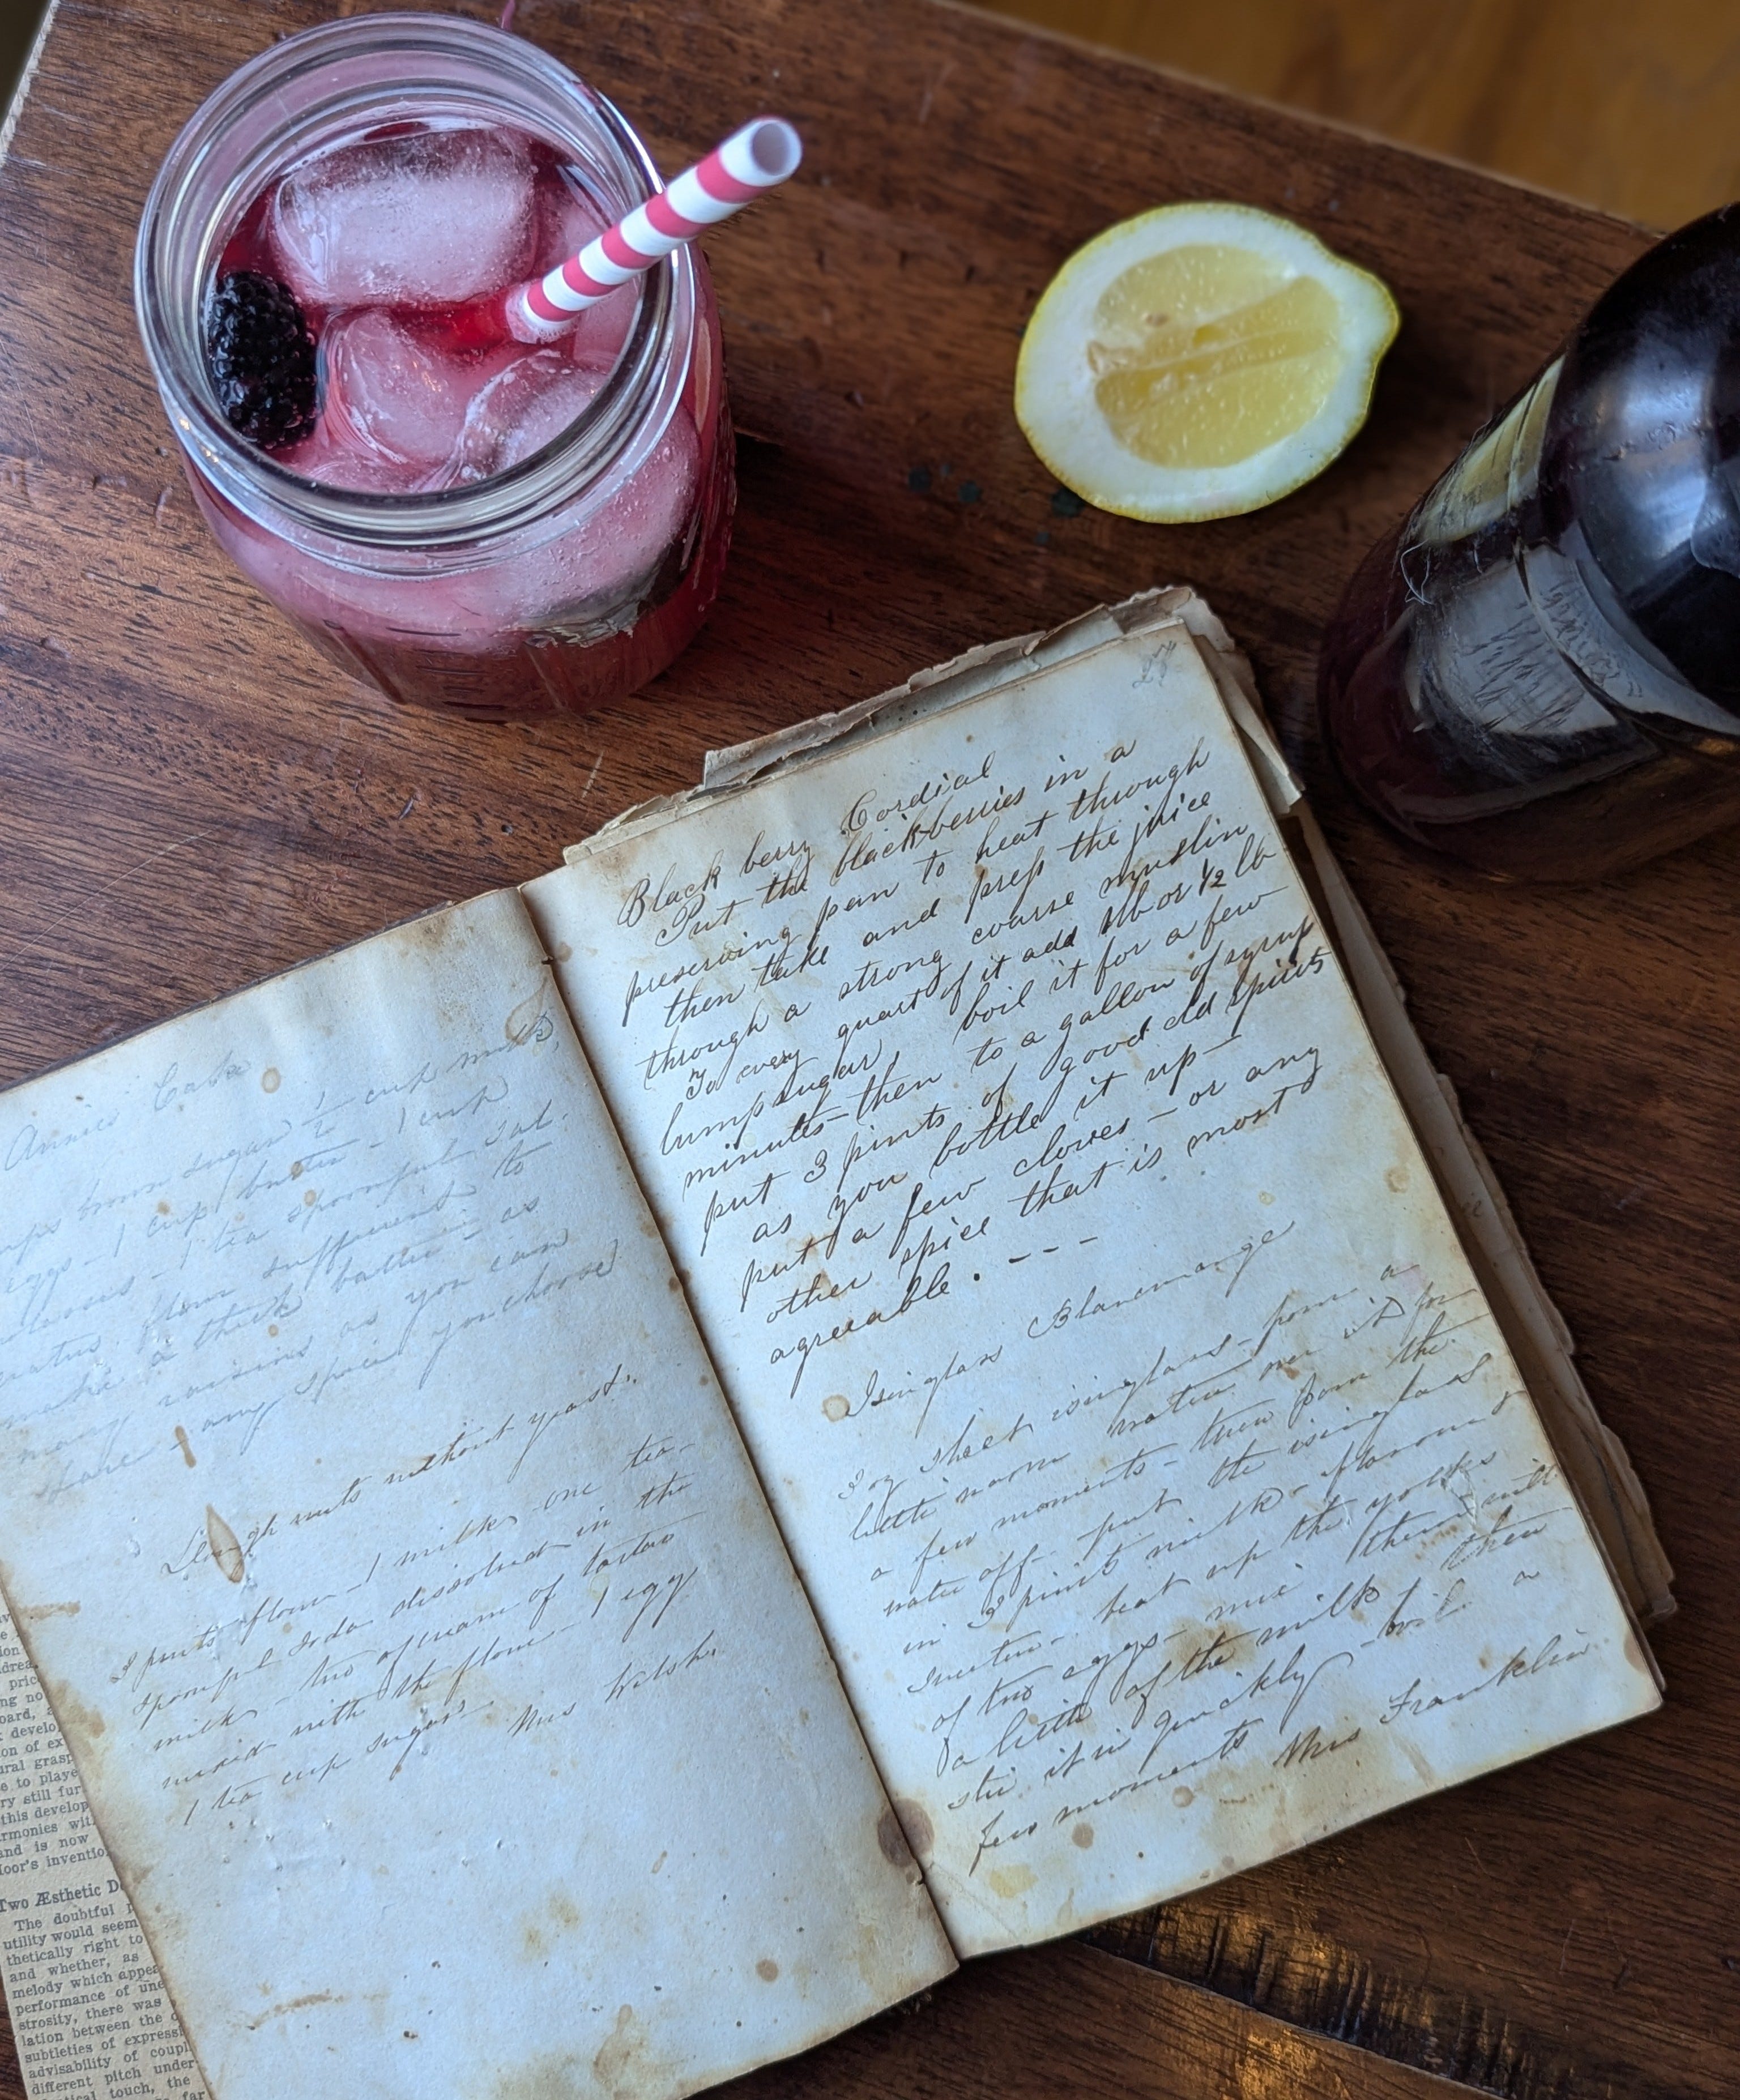 Annie's Cake
cups brown sugar 1/2 cup milk,
eggs - 1 cup butter - 1 cup
molasses - 1 tea spoonful Sal-
eratus. flour sufficient to
make a thick batter - as
many raisins as you can
spare - any spice you choose
Dough nuts without yeast.
3 pints flour - 1 milk - one tea-
spoonful soda dissolved in the
milk - two of cream of tartar
mixed with the flour - 1 egg
1 tea cup sugar.
Mrs Welsh.
27
Black berry Cordial
Put the blackberries in a
preserving pan to heat through
then take and press the juice
through a strong coarse muslin
To every quart of it add 1lb or 1/2 lb
lump sugar, boil it for a few
minutes - then to a gallon of syrup
put 3 pints of good old spirits
as you bottle it up -
put a few cloves - or any
other spice that is most
agreeable. - - -
Isinglass Blancmange
3 oz sheet isinglass - pour a
little warm water over it for
a few moments - then pour the
water off - put the isinglass
in 3 pints milk - flavour &
sweeten - beat up the yolks
of two eggs - mix them with
a little of the milk & then
stir it in quickly - boil a
few moments Mrs Franklin
pric
ng no
oard,
develo
on of ex
ural grasp
e to playe
ry still fur
this develop
rmonies wit
and is now
Moor's inventio
Two Æsthetic D
The doubtful p
utility would seem
thetically right to
and whether, as
melody which appea
performance of une
strosity, there was
lation between the
subtleties of expressi
advisability of coupl
different pitch under
touch, the
far